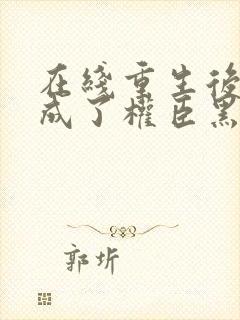 在綫重生後
成了權臣黑
郭圻